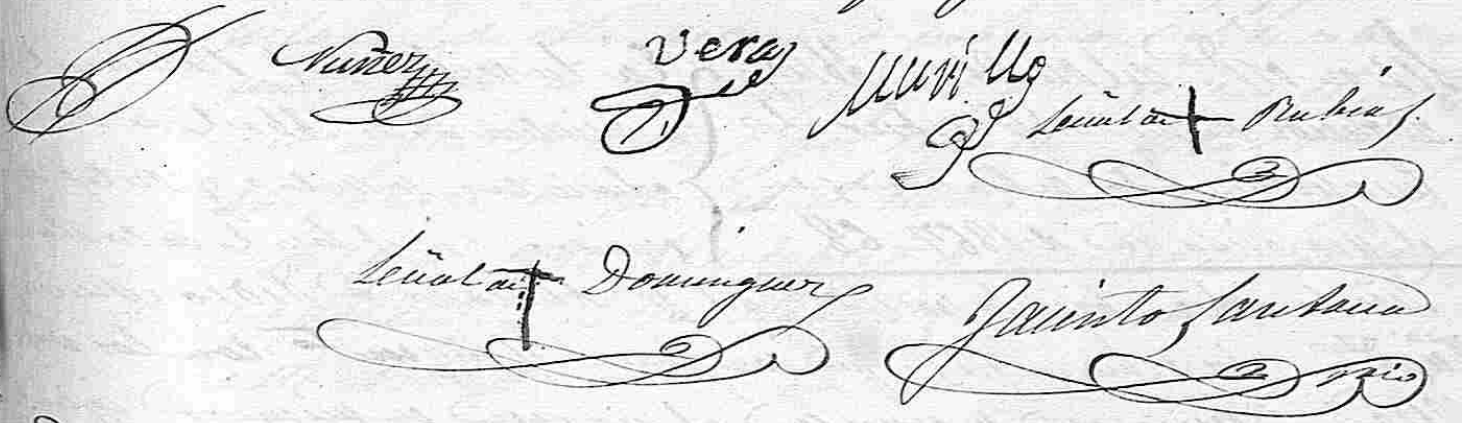 Nuñez Vera Murillo Señal de † Rubia
Señal de † Dominguez Jacinto Santana
Srio